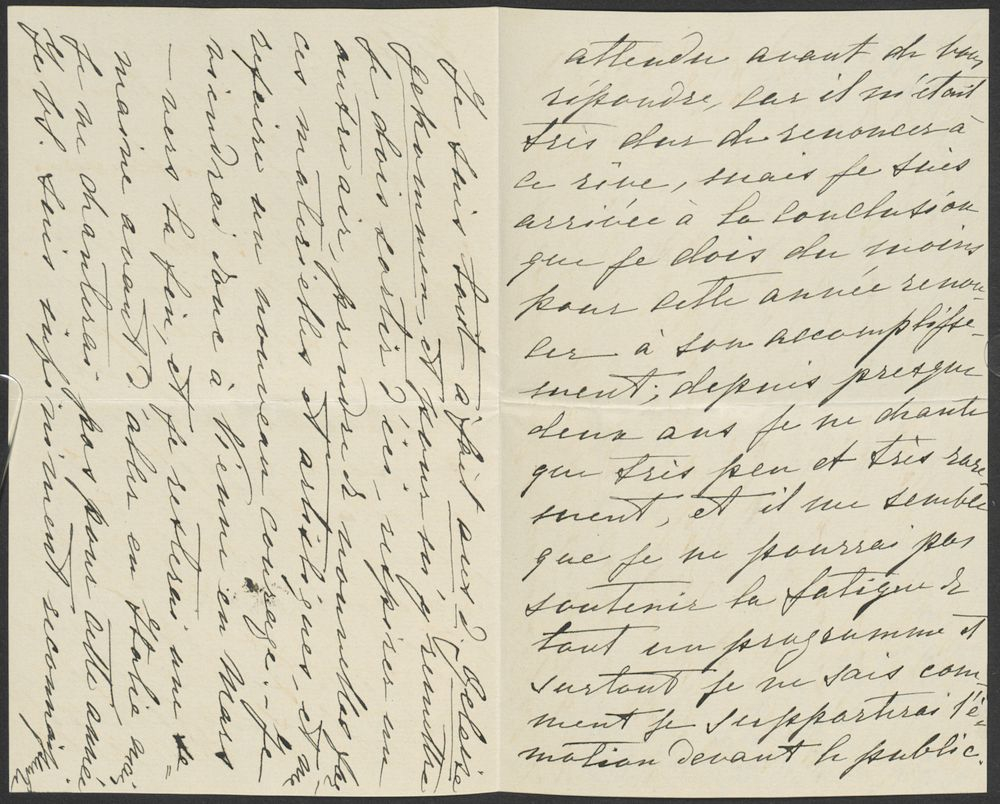 attendu avant de vous
répondre, car il m'était
très dur de renoncer à
ce rêve, mais je suis
arrivée à la conclusion
que je dois du moins
pour cette année renon-
cer à son accomplisse-
ment; depuis presque
deux ans je ne chante
que très peu et très rare
ment, et il me semble
que je ne pourrai pas
soutenir la fatigue de
tout un programme et
surtout je ne sais com-
ment je supporterai l'é-
motion devant le public.
Je suis tout à fait
et pour m'y remettre
je dois sortir d'ici, respirer un
autre air, prendre de nouvelles
ces matérielles et artistiques, et me
refaire un nouveau courage. Je
viendrai donc à Vienne en Mars
— vers la fin, et je resterai une se=
maine avant d'aller en Italie mais
je ne chanterai pas pour cette année
Je vs. suis infiniment reconnais